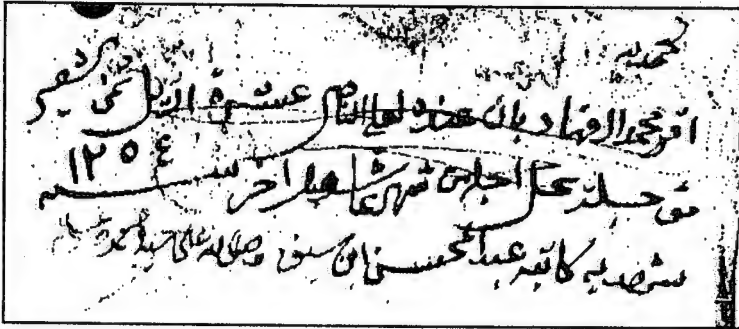 الحمد لله
اقر محمد الفهاد بان عنده لعلي الناصر عشرة اريل ثمن
مؤجلة يحل اجلهن شهر عاشور اخر سنة ١٢٥٤
شهد به كاتبه عبدالمحسن ابن سيف وصلى الله على محمد